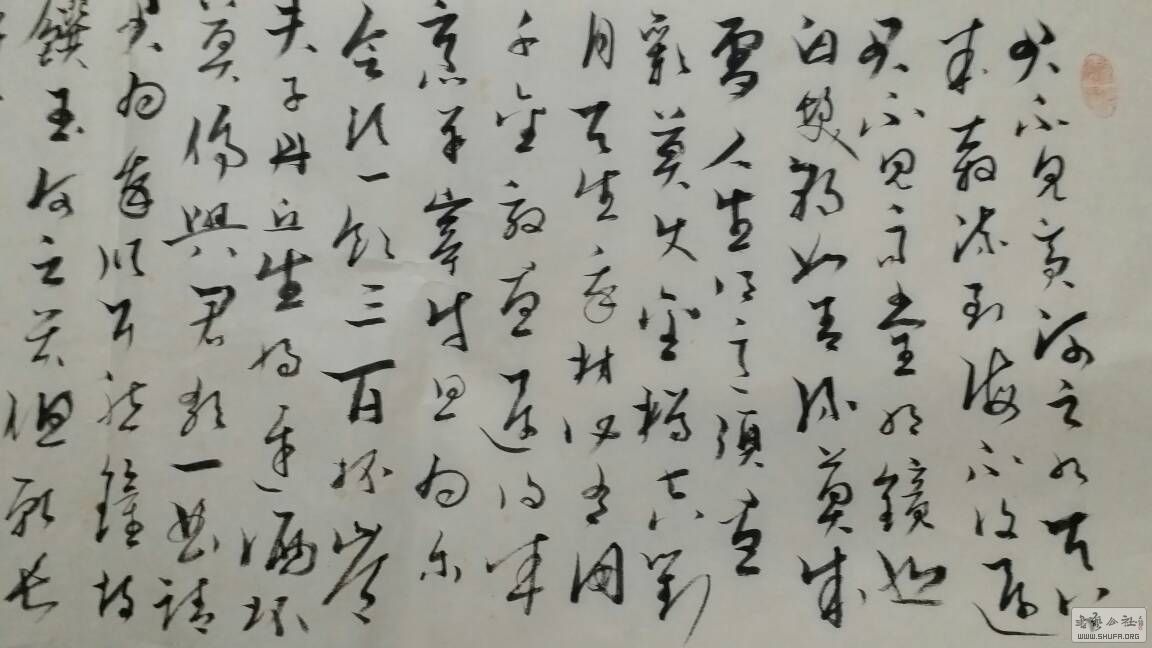 君不見黃河之水天上
來奔流到海不復還
君不見高堂明鏡悲
白髮朝如青絲暮成
雪人生得意須盡
歡莫使金樽空對
月天生我材必有用
千金散盡還復來
烹羊宰牛且為樂
會須一飲三百杯岑
夫子丹丘生將進酒杯
莫停與君歌一曲請
君為我傾耳聽鐘鼓
饌玉何足貴但願長
书法公社
WWW.SHUFA.ORG